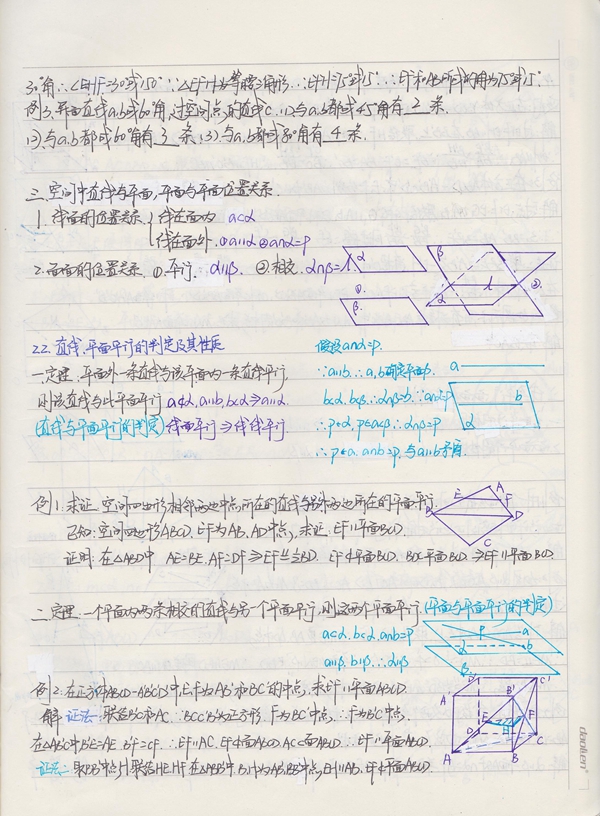 30°角∴∠EHF=30°或150° ∵△EFH为等腰三角形 ∴∠EFH=75°或15° ∴EF和AB所成的角为75°或15°
例3.平面直线a,b成60°角,过空间点的直线c.(1)与a,b都成45°角有 2 条
(2)与a,b都成60°角有 3 条.(3)与a,b都成80°角有 4 条.
三.空间中直线与平面,平面与平面位置关系.
1.线面的位置关系 线在面内 a⊂α
线在面外.①a∥α ②a∩α=P
2.面面的位置关系.①平行. α∥β. ②相交.α∩β=l
α
①.
β.
β
α
l
②.
2.2.直线,平面平行的判定及其性质
一.定理.平面外一条直线与该平面内一条直线平行
则该直线与此平面平行 a⊄α,a∥b,b⊂α⇒a∥α.
(直线与平面平行的判定) 线面平行⇒线线平行
假设a∩α=P.
∵a∥b.∴a,b确定平面β.
b⊂α,b⊂β.∴α∩β=b.∵a∩α=P
∴P∈α,P∈a⊂β.∴α∩β=P
∴P∈a.a∩b=P.与a∥b矛盾.
a
b
α
例1.求证.空间四边形相邻两边中点,所在的直线与另外两边所在的平面平行.
已知:空间四边形ABCD.E,F为AB,AD中点,求证.EF∥平面BCD.
证明:在△ABD中 AE=BE.AF=DF⇒EF∥=½BD. EF⊄平面BCD. BD⊂平面BCD⇒EF∥平面BCD.
A
E
F
B
D
C
二.定理.一个平面内两条相交的直线与另一个平面平行,则这两个平面平行.(平面与平面平行的判定)
a⊂α.b⊂α.a∩b=P
a∥β.b∥β.∴α∥β
P
a
α
b
β
例2.在正方体ABCD-A'B'C'D'中,E,F为AB'和BC'的中点,求EF∥平面ABCD.
解 证法一:联结B'C和AC.∵BCC'B'为正方形 F为BC'中点,∴F为B'C中点.
在△AB'C中B'E=AE. B'F=CF ∴EF∥AC.EF⊄面ABCD.AC⊂面ABCD.∴EF∥平面ABCD.
证法二:取BB'中点,H联结HE,HF.在△ABB'中.E,H为AB',BB'中点,EH∥AB.EF⊄平面ABCD.
D'
C'
A'
B'
E
F
H
D
C
A
B
daolien